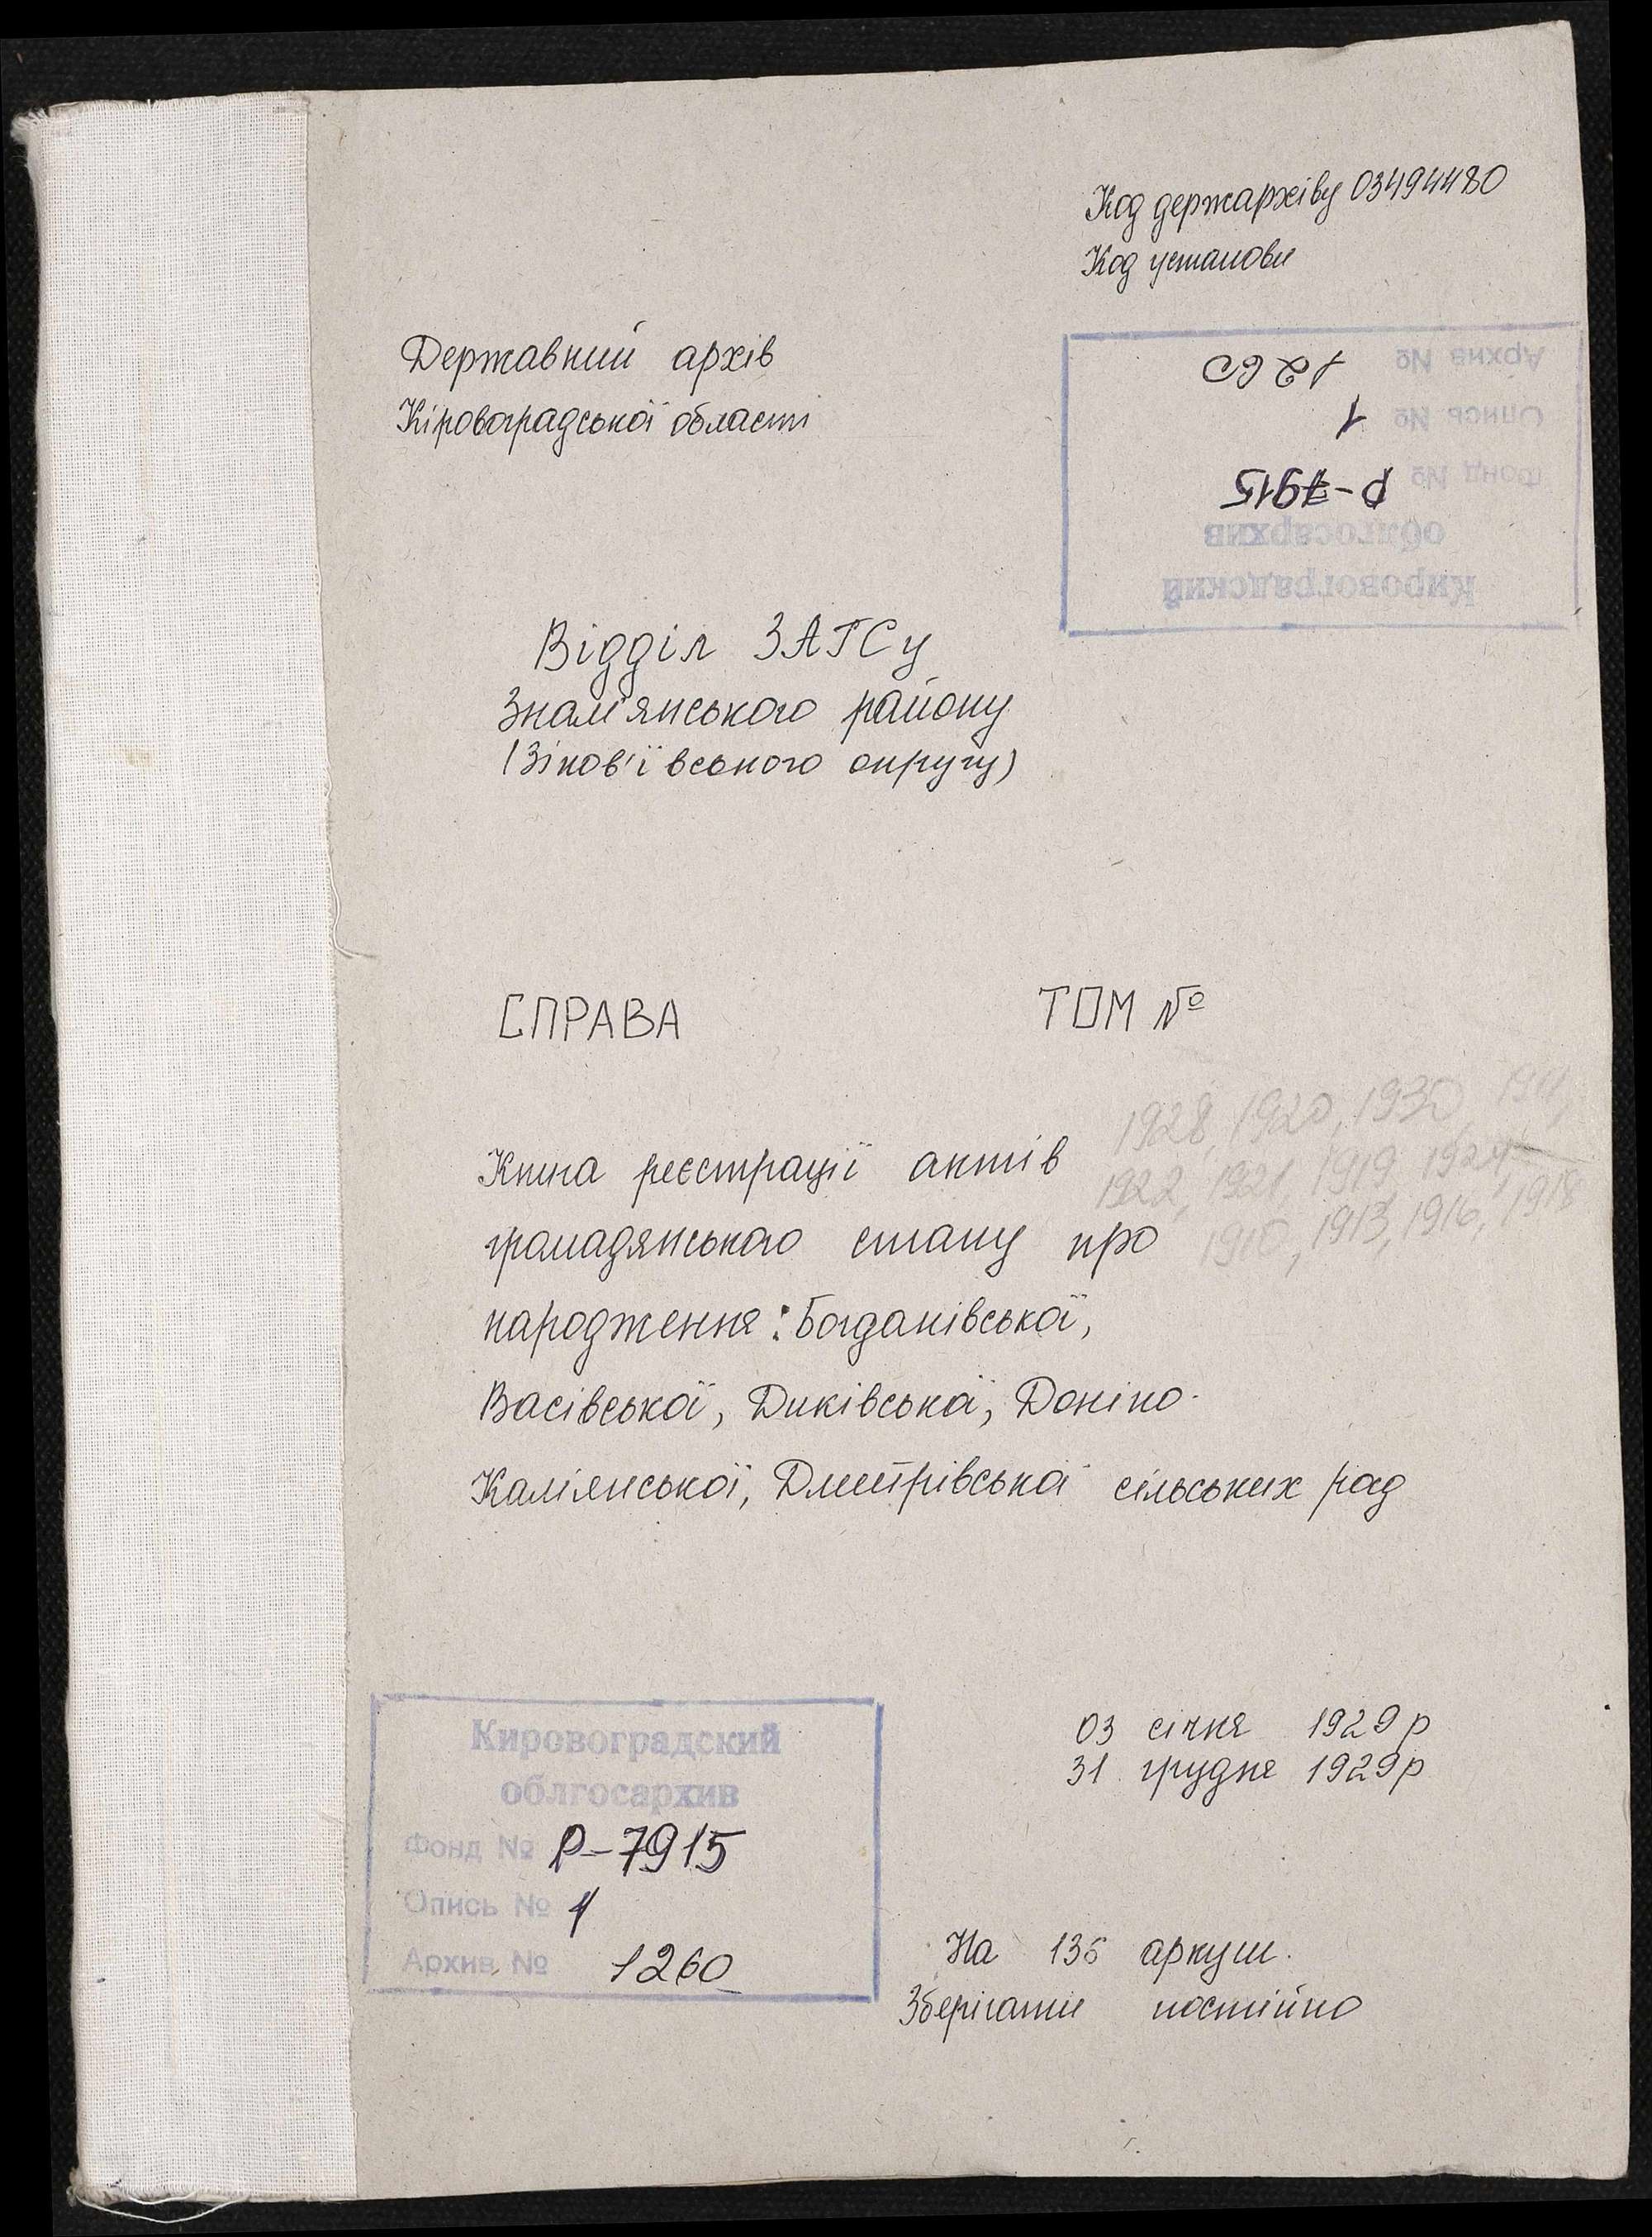 Код держархіву 03494480
Код установи
Державний архів
Кіровоградської области
Архив № 1260
Опись № 1
Фонд № Р-7915
облгосархив
Кировоградский
Відділ ЗАГСу
Знам'янського району
(Зінов'ївського округу)
СПРАВА ТОМ №
1928, 1920, 1930, 1911,
Книга реєстрації актів
1922, 1921, 1919, 1924
громадянського стану про
1913, 1916, 1918
народження: Богданівської,
Васівської, Диківської, Доніно-
Каміянської, Дмитрівської сільських рад
03 січня 1929 р
31 грудня 1929р
Кировоградский
облгосархив
Фонд № Р-7915
Опись № 1
Архив № 1260
На 136 аркуш.
Зберігати постійно